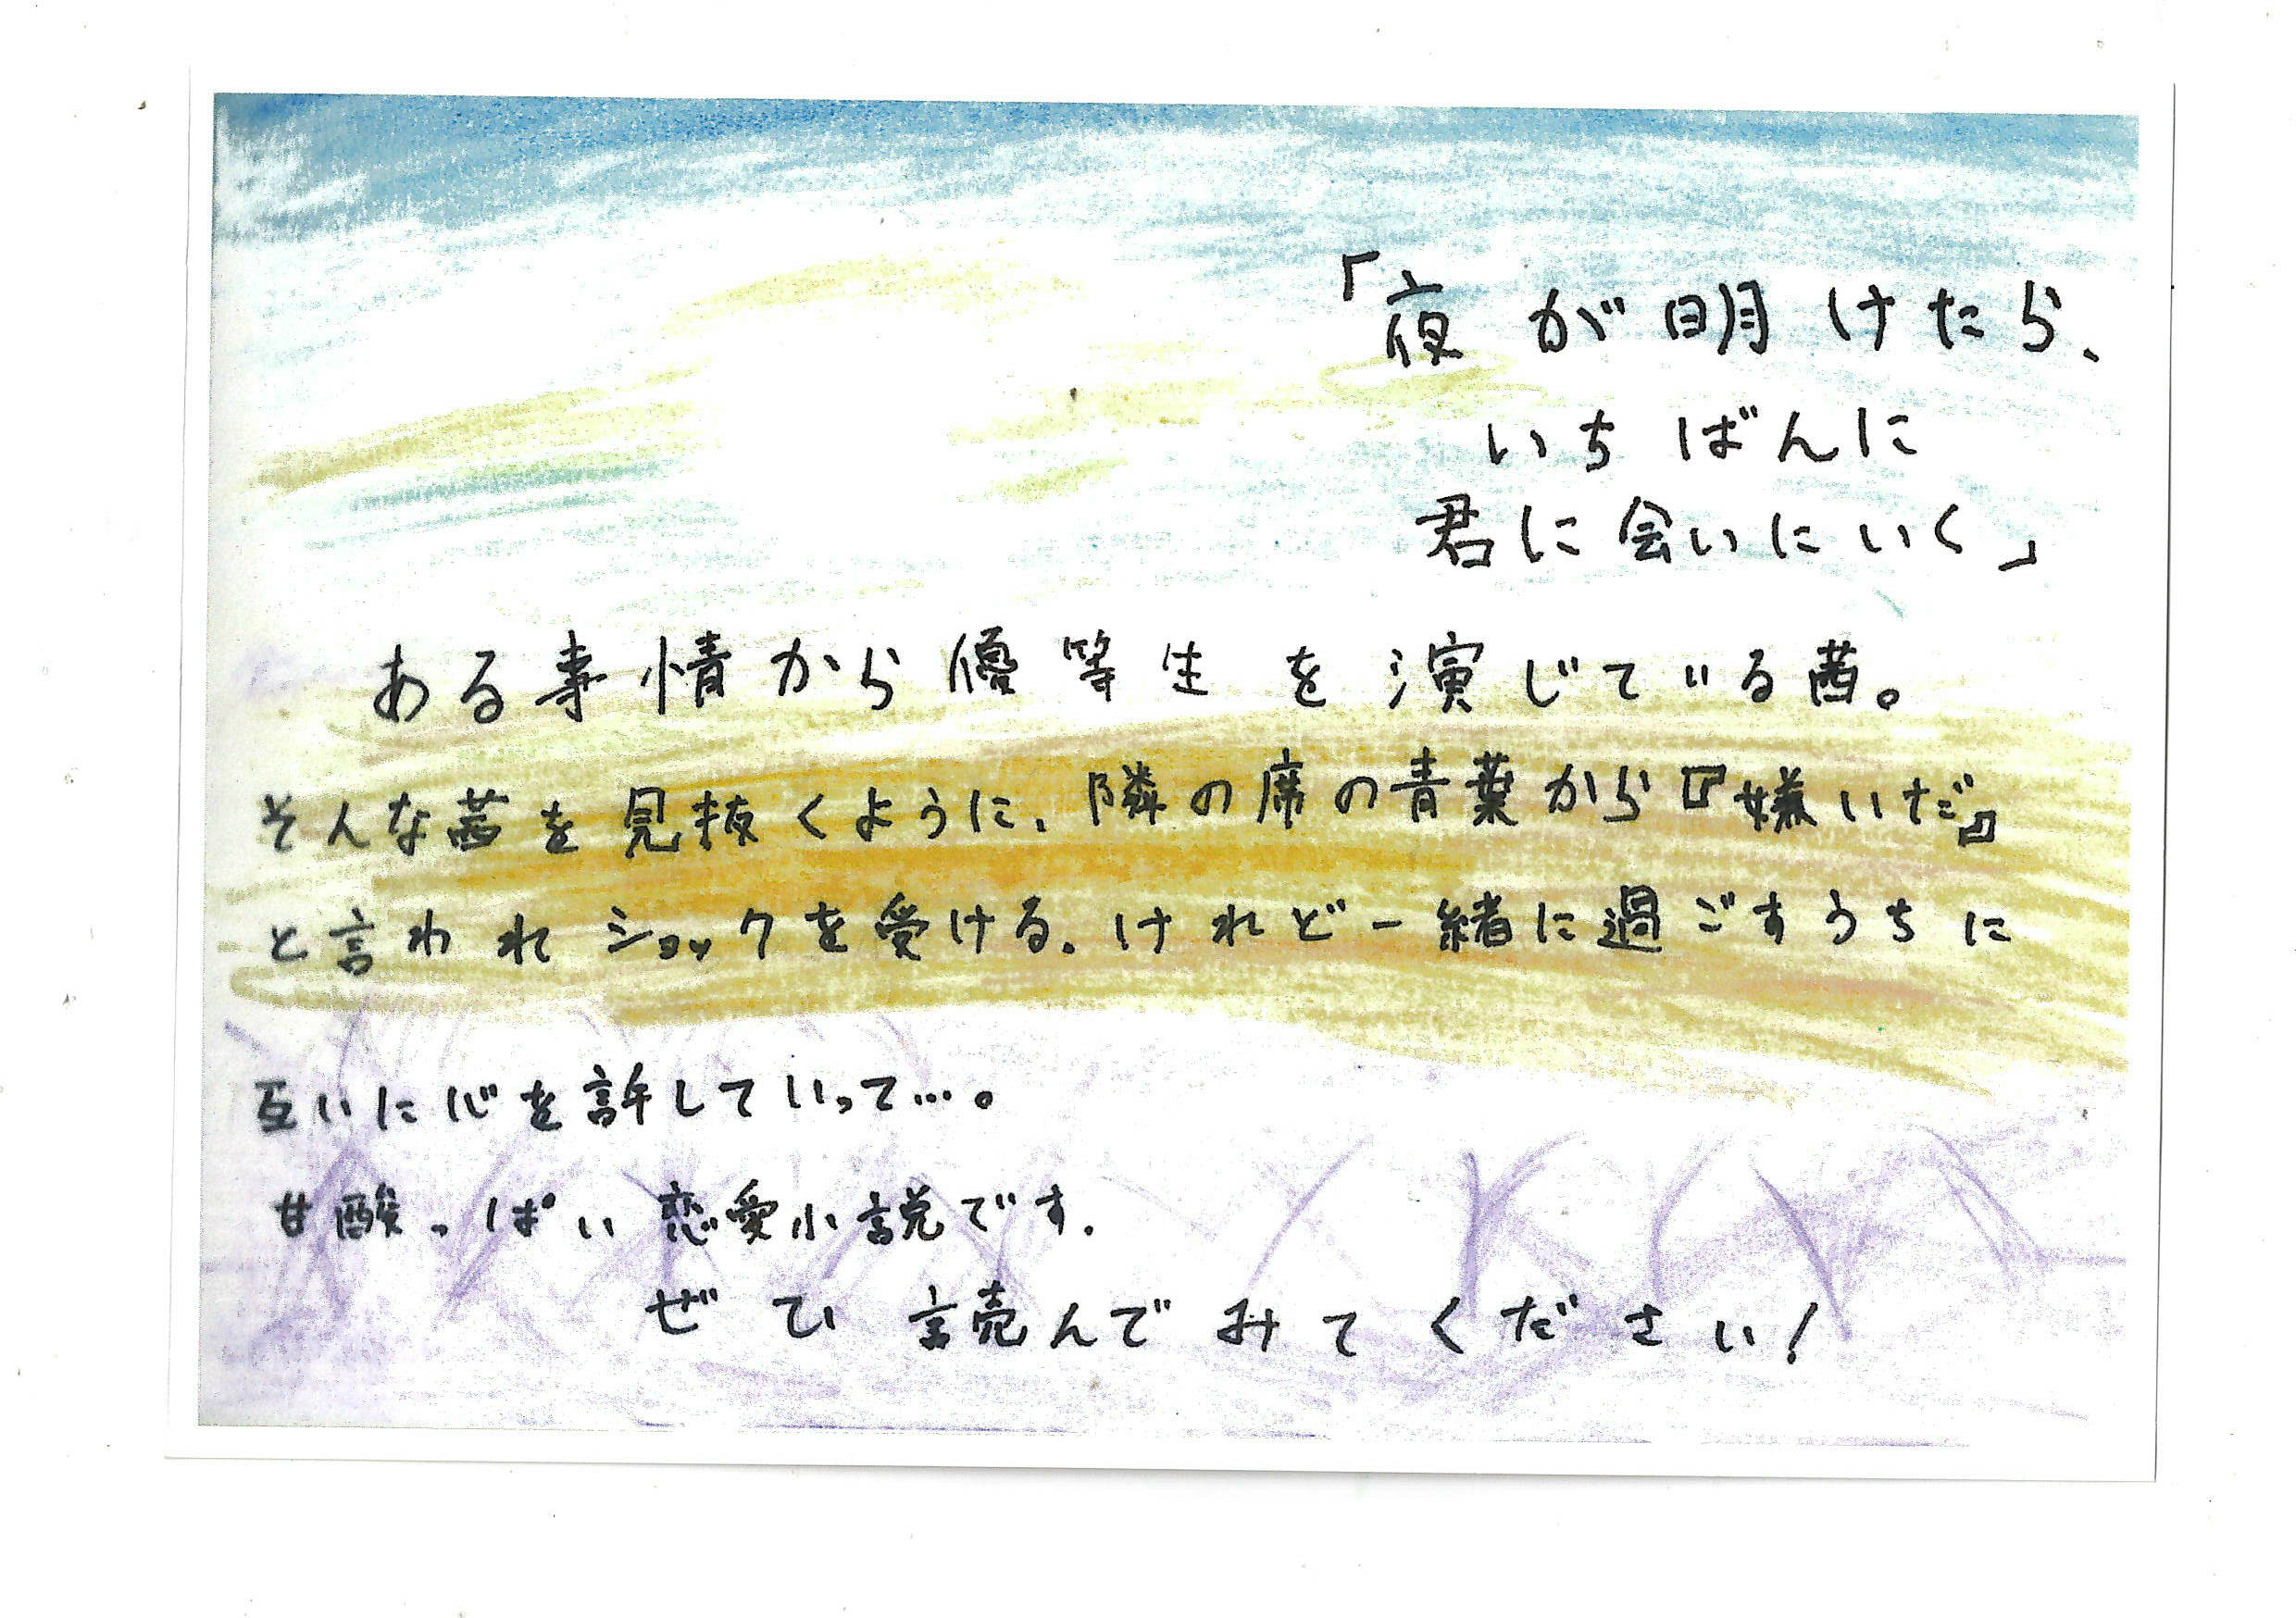 「夜が明けたら、
いちばんに
君に会いにいく」
ある事情から優等生を演じている茜。
そんな茜を見抜くように、隣の席の青葉から『嫌いだ』
と言われショックを受ける。けれど一緒に過ごすうちに
互いに心を許していって…。
甘酸っぱい恋愛小説です。
ぜひ読んでみてください!